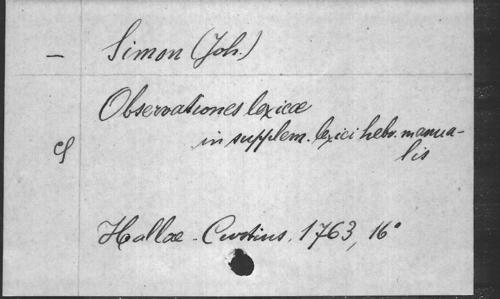 — Simon (Joh.)
Observationes lexicæ
in supplem. lexici hebr. manua-
lis
Hallae - Curtius, 1763, 16°